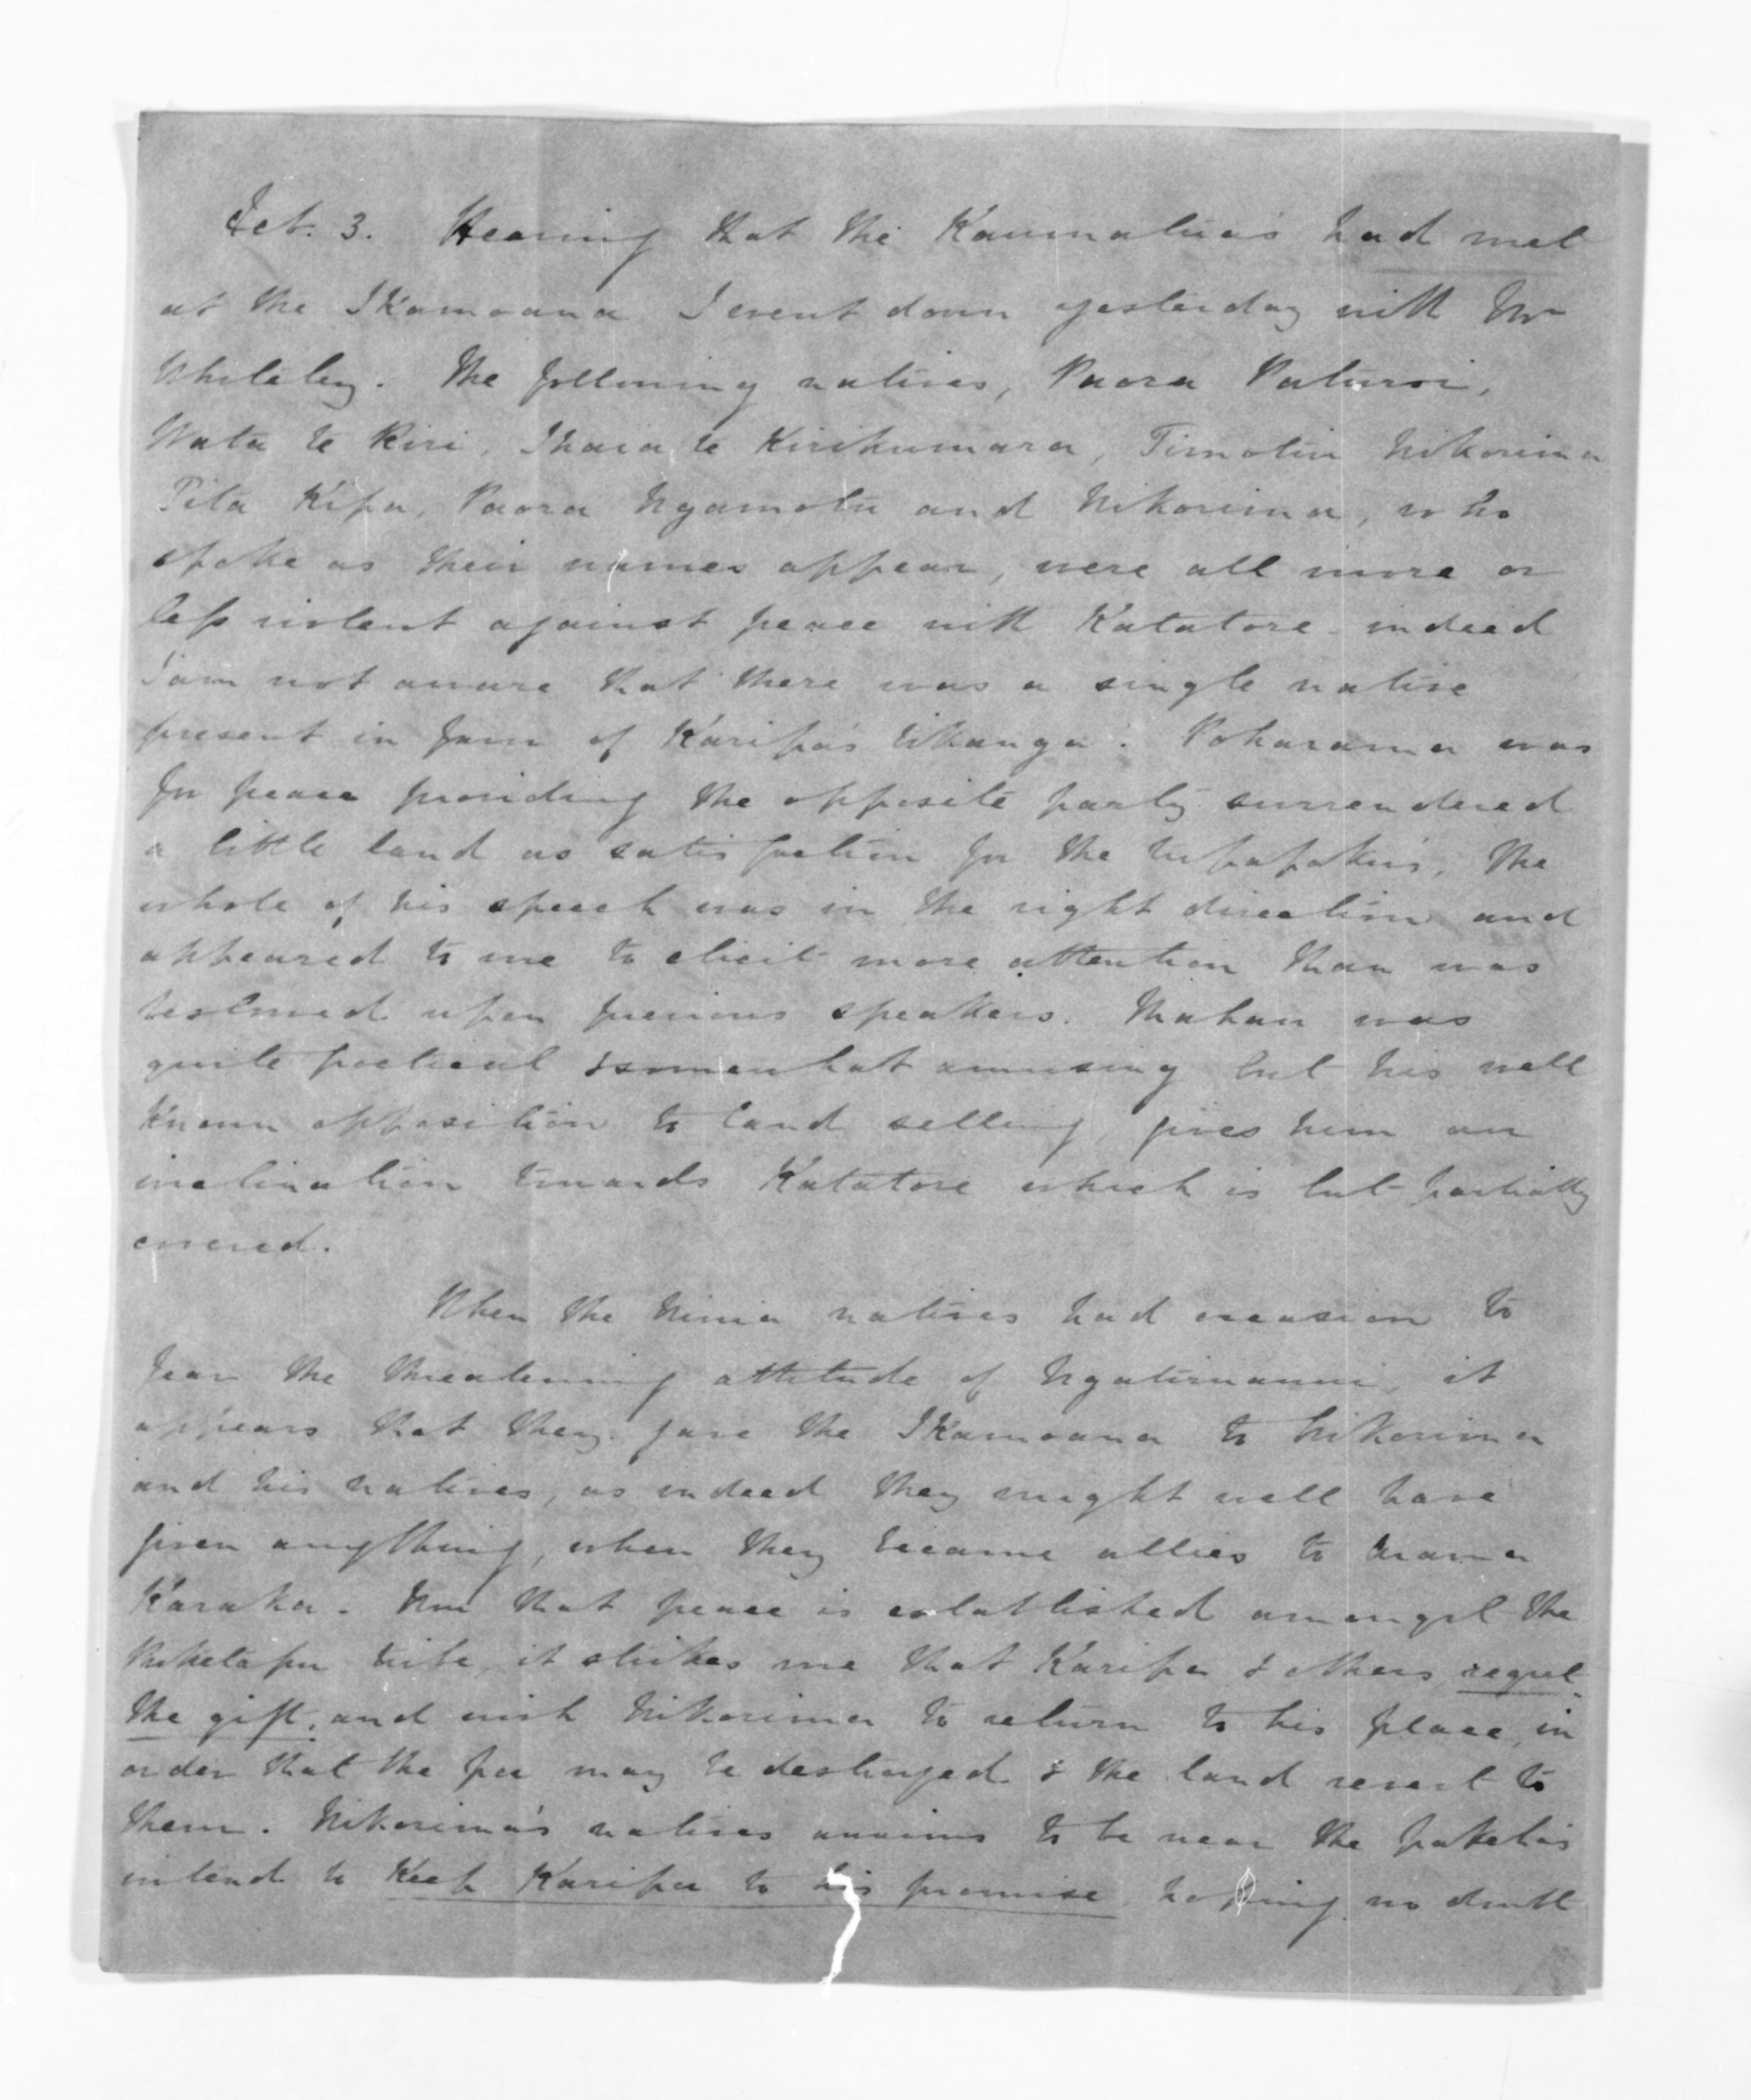 Feb. 3. Hearing that the Kaumatua's had met
at the Ikamoana I went down yesterday with Mr
Whiteley. The following natives, Paora
Wata te Kiri, Ihaia te Kirikumara, Timotiu Nikorima
Pita Kipa, Paora Ngamotu and Nikorima, who
spoke as their names appear, were all more or
less violent against peace with Katatore indeed
I am not aware that there was a single native
present in favor of Karipa's tikanga. Poharama was
for peace providing the opposite party surrendered
a little land as satisfaction for the tupapaku's, the
whole of his speech was in the right direction and
appeared to me to elicit more attention than was
bestowed upon previous speakers. was
quite poetical & somewhat amusing but his well
known opposition to land selling, gives him an
inclination towards Katatore which is but partially
covered.
When the natives had occasion to
fear the threatening attitude of Ngatiruanui, it
appears that they gave the Ikamoana to Nikorima
and his natives, as indeed they might well have
given anything, when they became allies to Arama
Karaka. Now that peace is established amongst the
Puketapu tribe, it strikes me that Karipa & others regret
the gift, and wish Nikorima to return to his place, in
order that the pa may be destroyed & the land revert to
them. Nikorima's natives anxious to be near the pakeha's
intend to keep Karipa to his promise, hoping no doubt